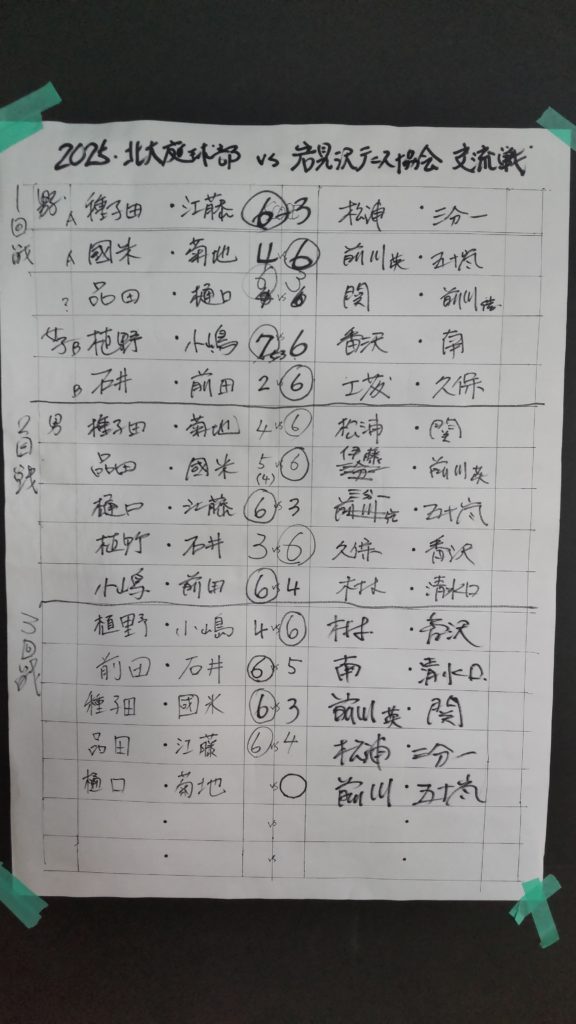 2025.北大庭球部 vs 岩見沢テニス協会 交流戦
1回戦 男 A 種子田 ・江藤 6 vs 3 松浦 ・三分一
A 國米 ・菊地 4 6 前川英・五十嵐
? 品田 ・樋口 vs 6 関 ・前川
女B 植野 ・小嶋 7 vs 6 香沢 ・南
B 石井 ・前田 2 6 ・久保
2回戦 男 種子田・菊地 4 vs 6 松浦 ・関
品田・國米 5(4) vs 6 伊藤 三分一 ・前川英
樋口・江藤 6 vs 3 三分一 前川 ・五十嵐
植野・石井 3 vs 6 久保・香沢
小嶋・前田 6 vs 4 村上・清水口
3回戦 植野・小嶋 4 vs 6 村上・香沢
前田・石井 6 vs 5 南 ・清水口.
種子田・國米 6 vs 3 前川英・関
品田・江藤 6 vs 4 松浦・三分一
樋口・菊地 vs 前川・五十嵐
・ vs ・
・ vs ・